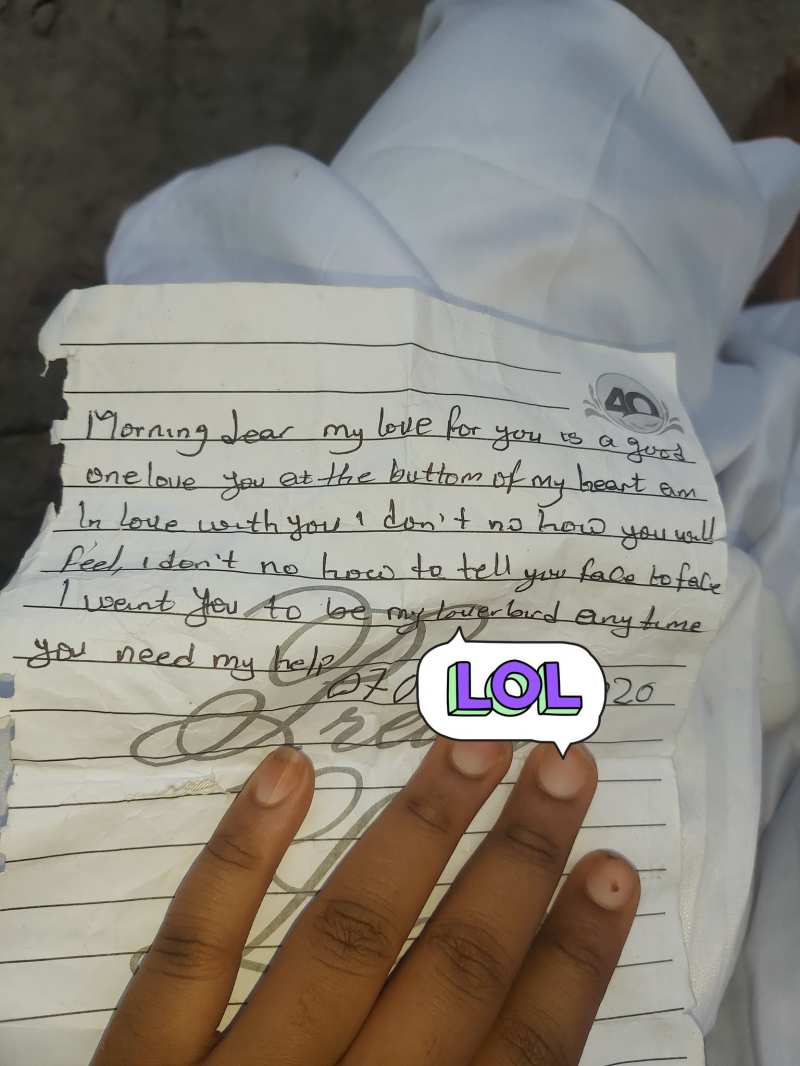 40
Morning dear my love for you is a good
one love you at the buttom of my heart am
In love with you I don't no how you will
feel, i don't no how to tell you face to face
I want you to be my loverbird any time
you need my help
070
LOL
020